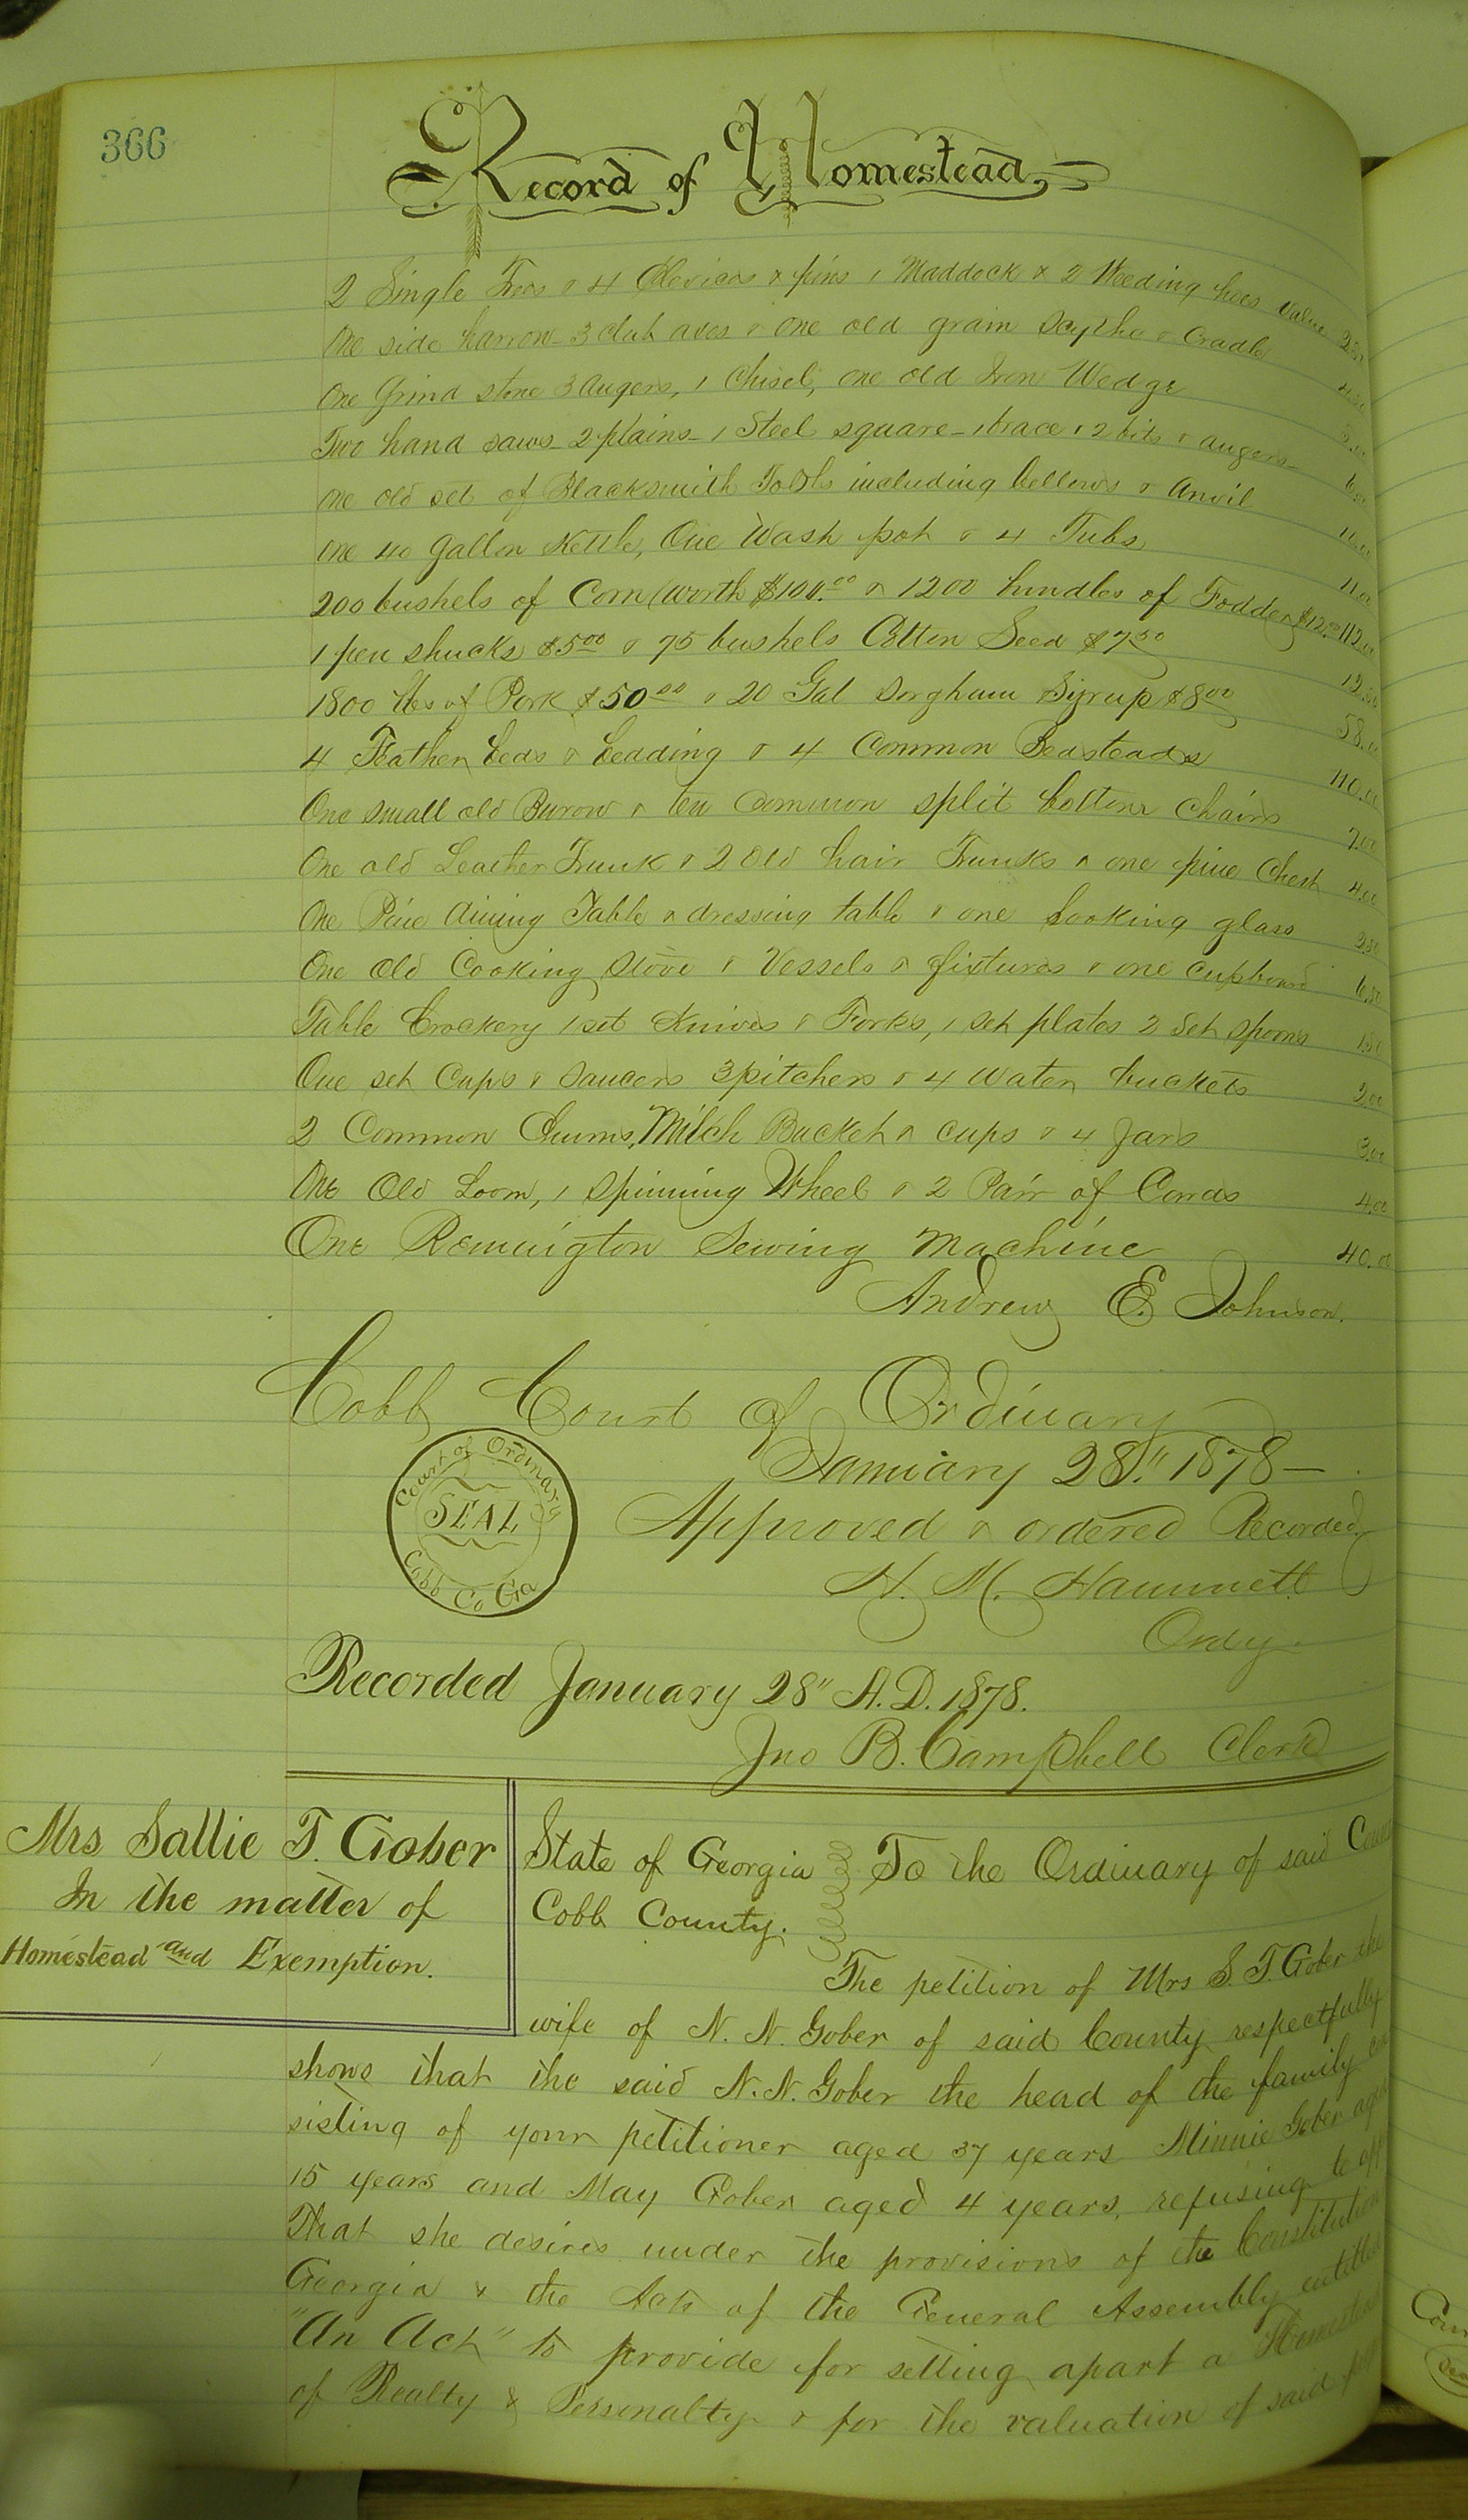 366
Record of Homestead,
2 Single Trees & 4 Clevices & pins 1 Maddock & 2 Weeding hoes value
One side harrow - 3 club axes & one old grain Scythe & Cradle
One Grind stone 3 augers, 1 Chisel, one old Iron Wedge
Two hand saws - 2 plains - 1 Steel square - 1 brace & 2 bits & augers -
One old set of Blacksmith Tools including bellows & Anvil
One 40 gallon Kettle, One Wash pot & 4 Tubs
200 bushels of Corn (worth $100.00 & 1200 bundles of Fodder $12.00 112.00
1 pen shucks $5.00 & 75 bushels Cotton Seed $7.50 12.50
1800 lbs of Pork $50.00 & 20 Gal Sorgham Syrup $8.00 58.00
4 Feather beds & beading & 4 Common Bedsteads 110.00
One small old Burow & ten common split bottom chairs 7.00
One old Leather Trunk & 2 Old hair Trunks & one pine Chest 4.00
One Pine dining Table & dressing table & one Looking glass 2.50
One Old Cooking Stove & Vessels & fixtures & one cupboard 6.50
Table Crockery 1 set Knives & Forks, 1 set plates 2 Set spoons 1.50
One set Cups & Saucers 3 pitchers & 4 water buckets 2.00
2 Common Churns, Milch Bucket & cups & 4 Jars 3.00
One Old Loom, 1 Spinning Wheel & 2 Pair of Cards 4.00
One Remington Sewing Machine 40.00
Andrew E. Johnson.
Cobb Court of Ordinary
January 28." 1878 -
Court of Ordinary
SEAL
Cobb Co Ga
Approved & ordered Recorded
H. M. Hammett
Ordy.
Recorded January 28" A.D. 1878.
Jno B. Campbell Clerk
Mrs Sallie T. Gober
In the matter of
Homestead and Exemption.
State of Georgia To the Ordinary of said
Cobb County.
The petition of Mrs S. T. Gober the
wife of N. N. Gober of said County respectfully
shows that the said N. N. Gober the head of the family con
sisting of your petitioner aged 37 years Minnie Gober aged
15 years and May Gober aged 4 years, refusing to
That she desires under the provisions of the Constitution
Georgia & the Acts of the General Assembly entitled
"An Act" to provide for setting apart a Homestead
of Realty & Personalty & for the valuation of said